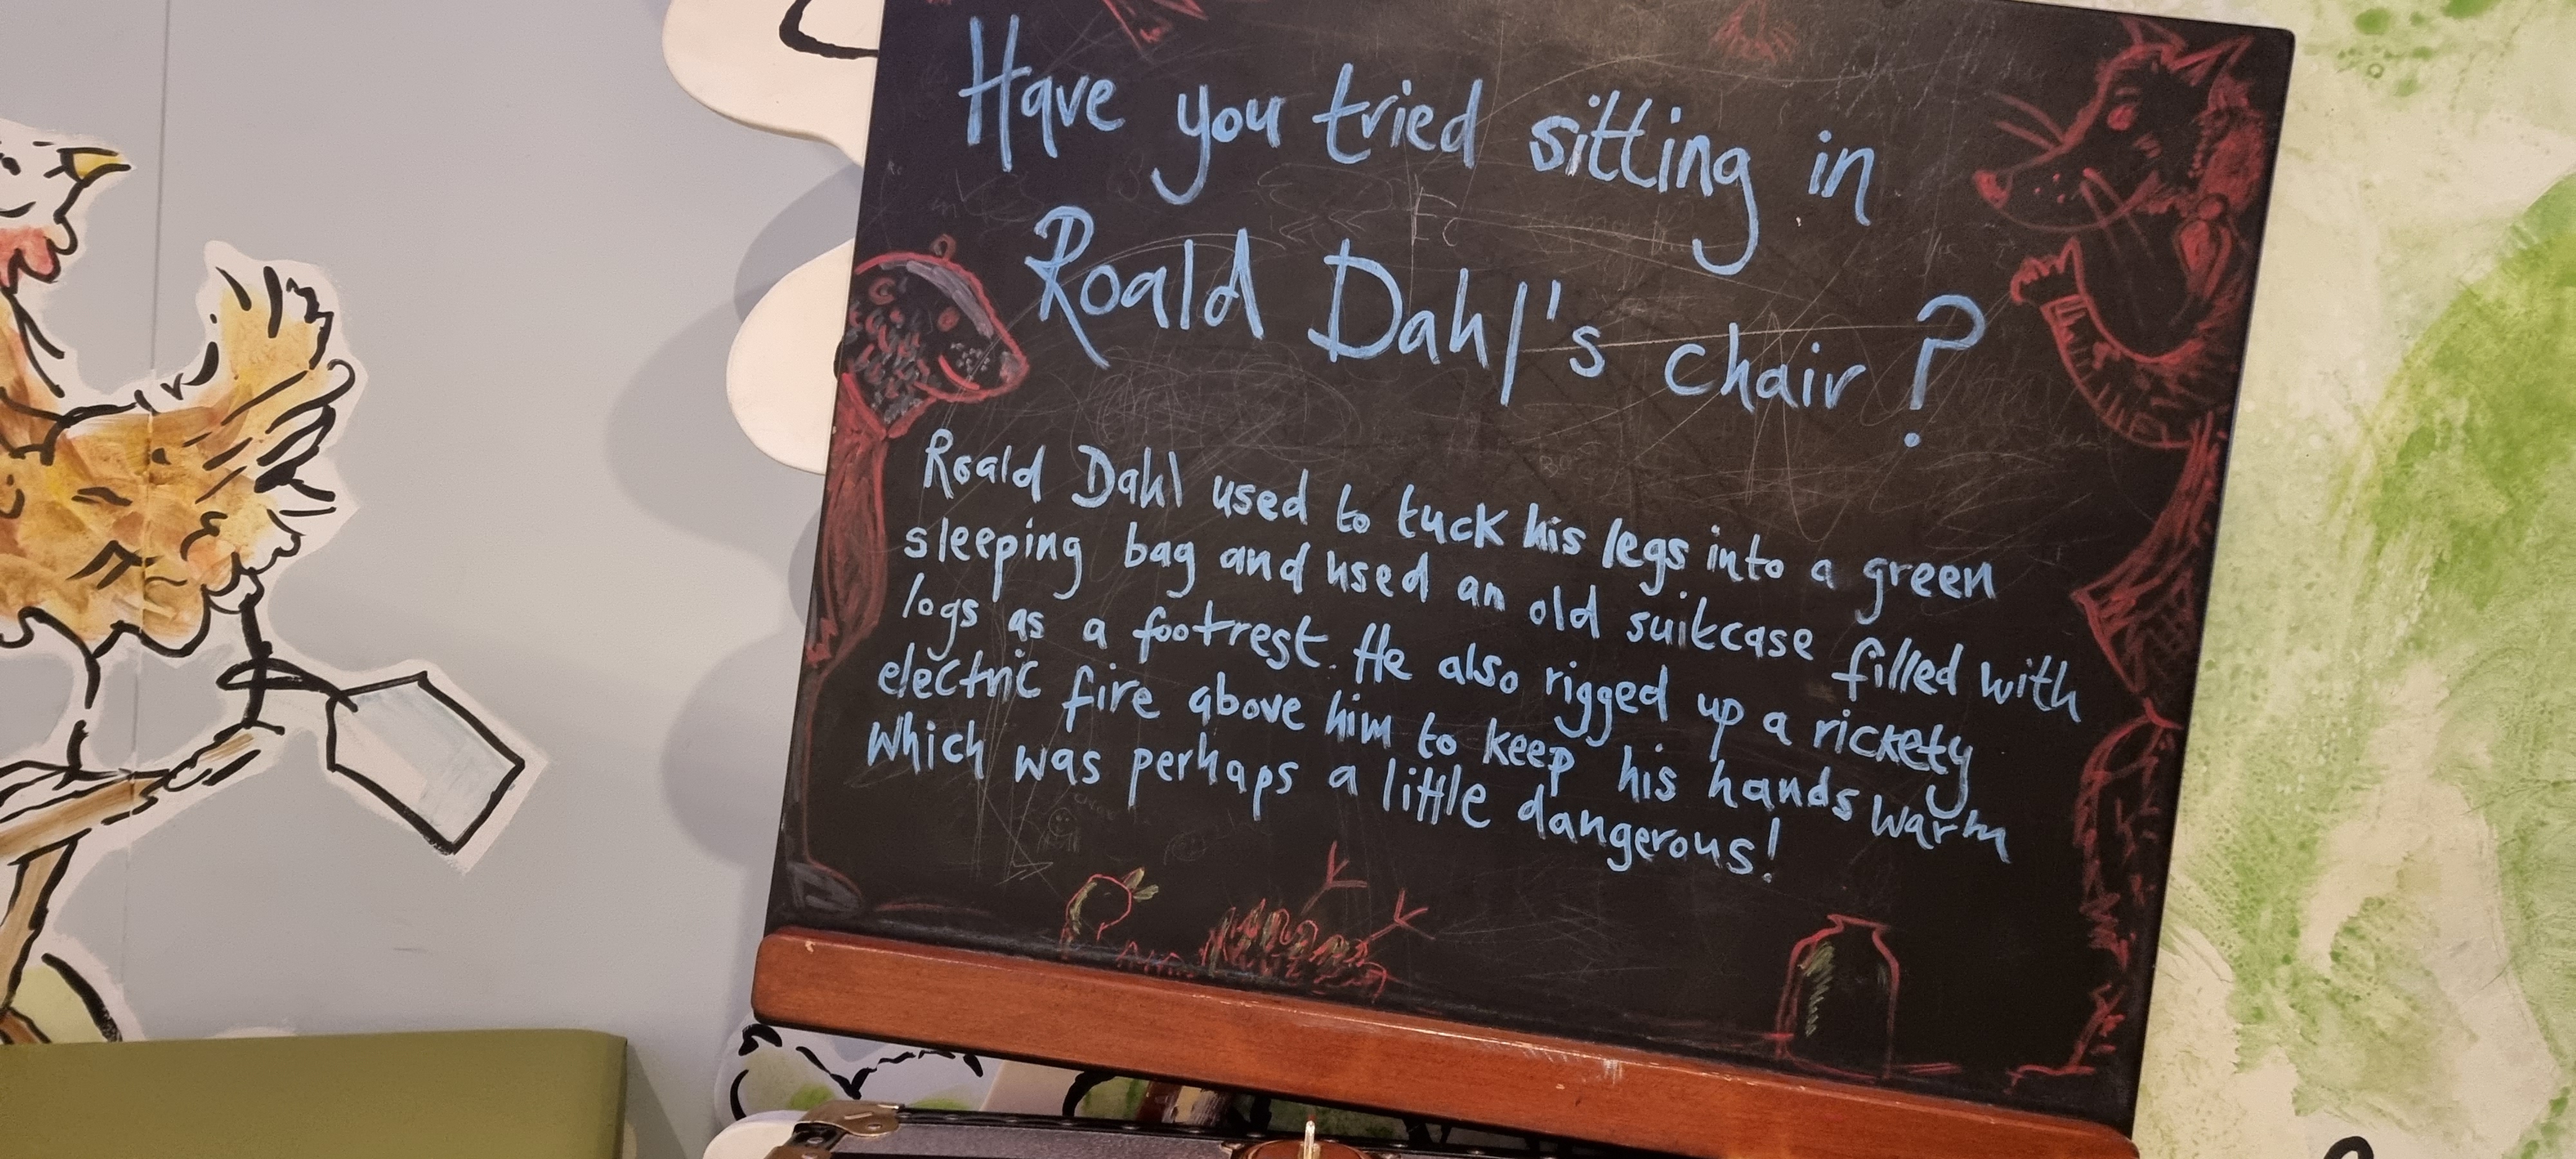 Have you tried sitting in
Roald Dahl's chair?
Roald Dahl used to tuck his legs into a green
sleeping bag and used an old suitcase filled with
logs as a footrest. He also rigged up a rickety
electric fire above him to keep his hands warm
which was perhaps a little dangerous!